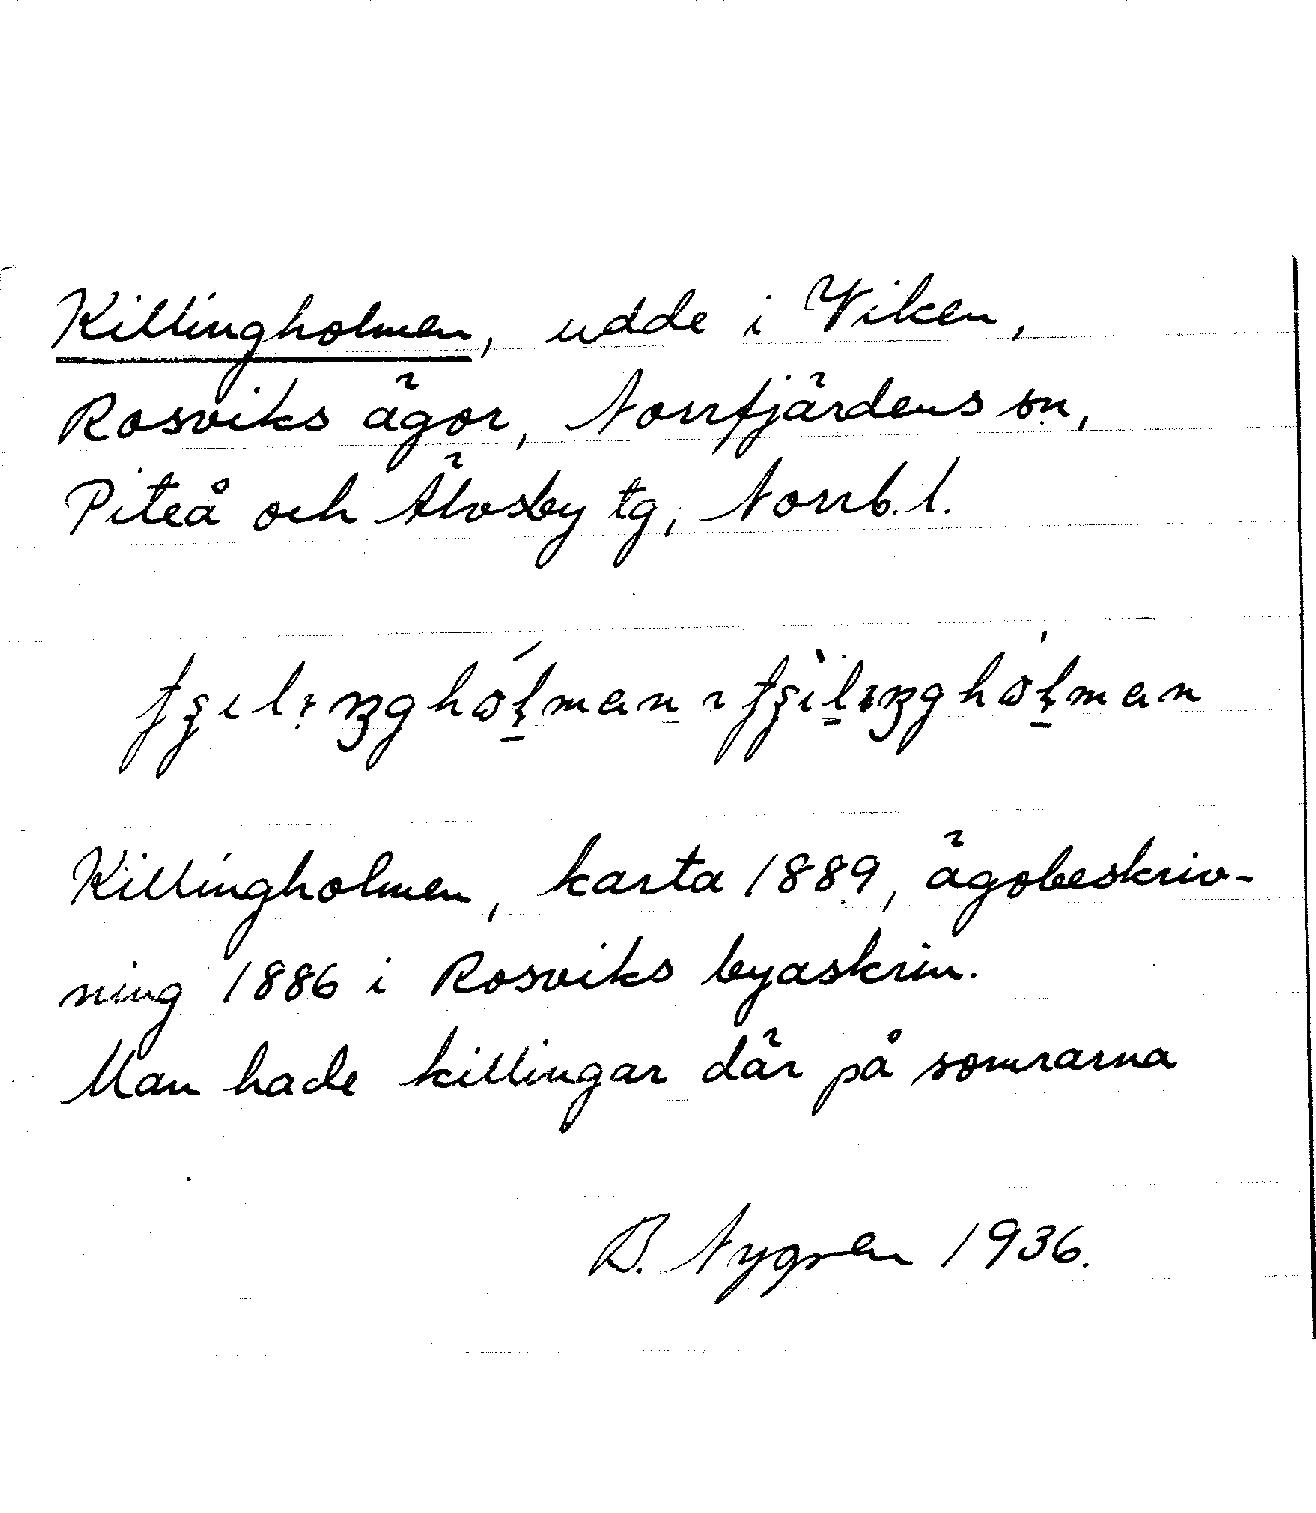 Killingholmen, udde i Viken,
Rosviks ägor, Norrfjärdens sn,
Piteå och Älvsby tg, Norrb. l.
Killingholmen, karta 1889, ägobeskriv-
ning 1886 i Rosviks byaskrin.
Man hade killingar där på somrarna
B. Nygren 1936.